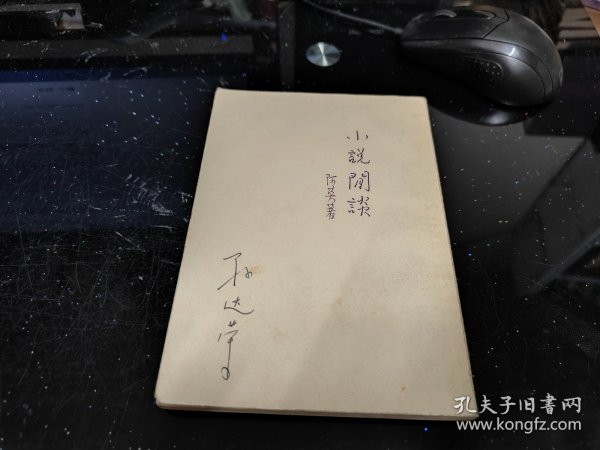 小說閒談
阿英著
孙达
孔夫子旧書网
www.kongfz.com